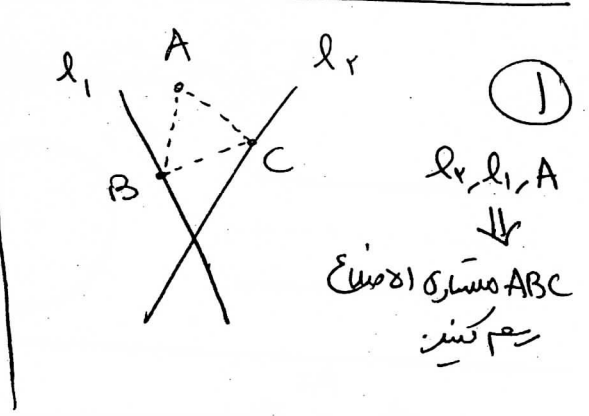 A
l۱
l۲
B
C
۱
A, l۱, l۲
⇓
ABC متساوی الاضلاع
رسم کنید.